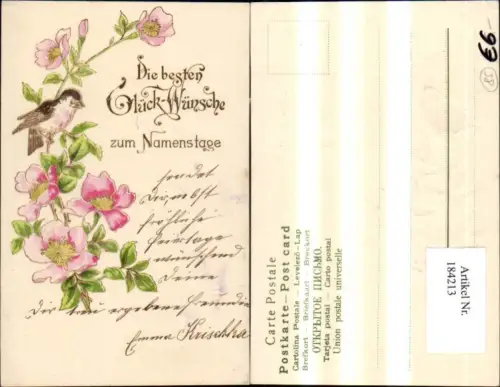 Die besten
Glück-Wünsche
zum Namenstage
sendet
Dir nebst
fröhliche
Feiertage
wünschend
Deine
Dir treu ergebene Freundin
Emma Krischka
Carte Postale
Postkarte – Post card
Cartolina Postale – Levelező-Lap
Brefkort Briefkaart Brevkort
ОТКРЫТОЕ ПИСЬМО.
Tarjeta postal – Carto postal
Union postale universelle
Artikel Nr.
184213